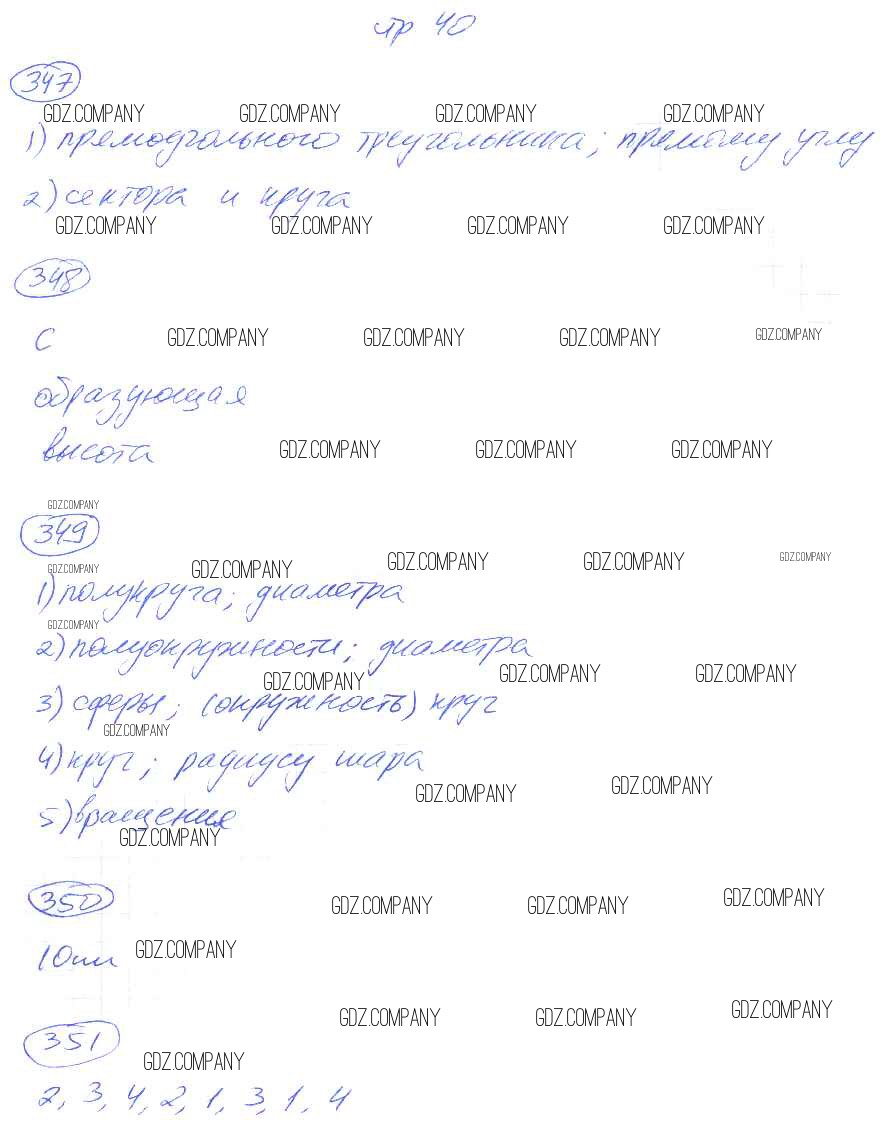 стр 40
347
GDZ.COMPANY GDZ.COMPANY GDZ.COMPANY GDZ.COMPANY
1) прямоугольного треугольника; прямому углу
2) сектора и круга
GDZ.COMPANY GDZ.COMPANY GDZ.COMPANY GDZ.COMPANY
348
С GDZ.COMPANY GDZ.COMPANY GDZ.COMPANY GDZ.COMPANY
образующая
высота GDZ.COMPANY GDZ.COMPANY GDZ.COMPANY
GDZ.COMPANY
349
GDZ.COMPANY GDZ.COMPANY GDZ.COMPANY GDZ.COMPANY GDZ.COMPANY
1) полукруга; диаметра
GDZ.COMPANY
2) полуокружности; диаметра
GDZ.COMPANY GDZ.COMPANY GDZ.COMPANY
3) сферы; (окружность) круг
GDZ.COMPANY
4) круг; радиусу шара
GDZ.COMPANY GDZ.COMPANY
5) вращения
GDZ.COMPANY
350 GDZ.COMPANY GDZ.COMPANY GDZ.COMPANY
10см GDZ.COMPANY
GDZ.COMPANY GDZ.COMPANY GDZ.COMPANY
351
GDZ.COMPANY
2, 3, 4, 2, 1, 3, 1, 4